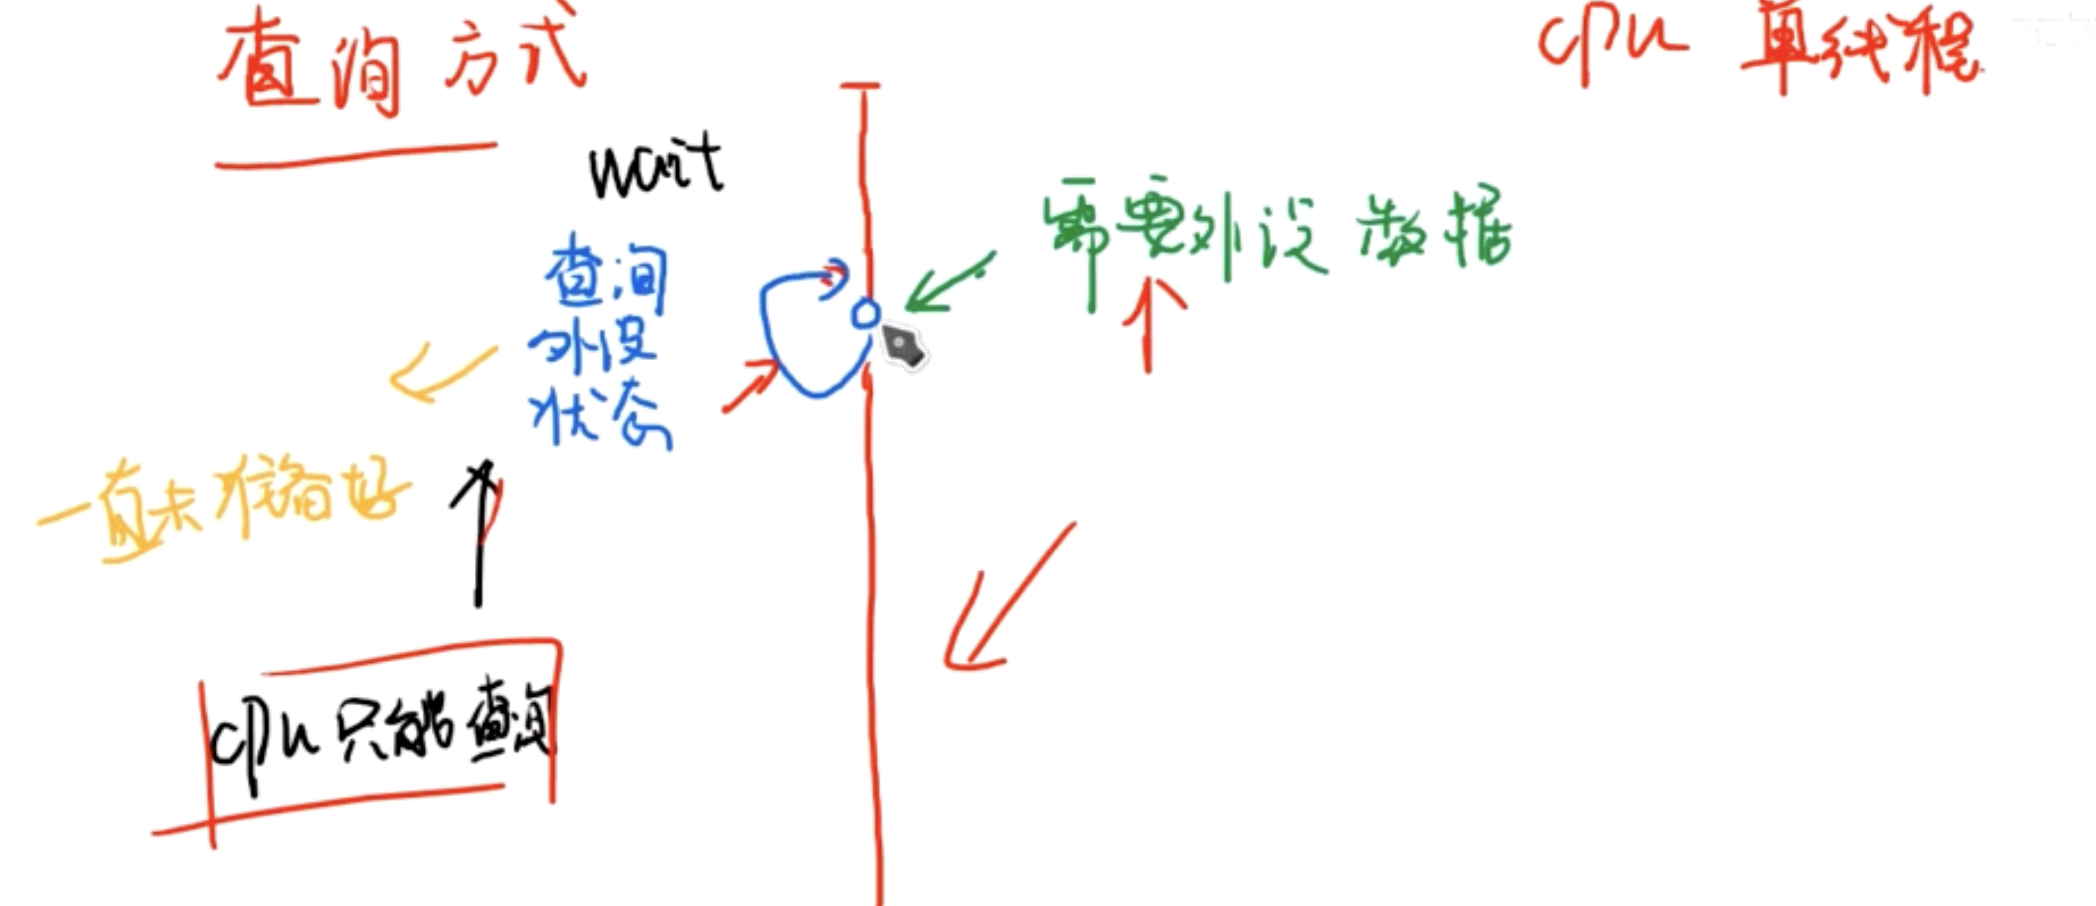 查询方式
cpu 单线程
wait
需要外设数据
查询
外设
状态
一直未准备好
cpu只能查询